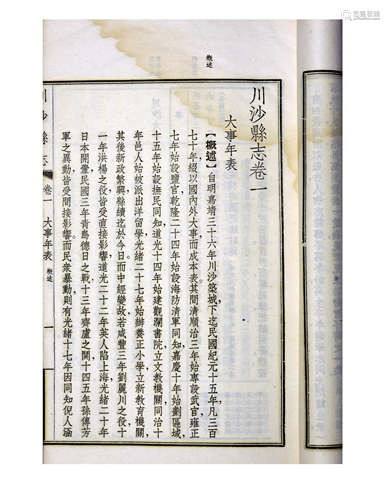 川沙縣志卷一
大事年表
【概述】自明嘉靖三十六年川沙築城下迄民國紀元十五年凡三百
七十年綴以國內外大事而成本表其間清順治三年始專設武官雍正
七年始設鹽官乾隆二十四年始設海防清軍同知嘉慶十年始劃區域,
十五年始設撫民同知道光十四年始建觀瀾書院立文教機關同治十
年邑人始被派出洋留學光緒二十七年始辦養正小學立新教育機關
其後新政繁興縣續迄於今日而中經變故若咸豐三年劉麗川之役十
一年洪楊之役皆受直接影響道光二十二年英人陷上海光緒二十年
日本開釁民國三年青島德日之戰十三年齊盧之鬨十四五年孫傳芳
軍之異動皆受間接影響而民衆暴動則有光緒十七年因同知倪人涵
川沙縣志
卷一 大事年表 概述
一
概述